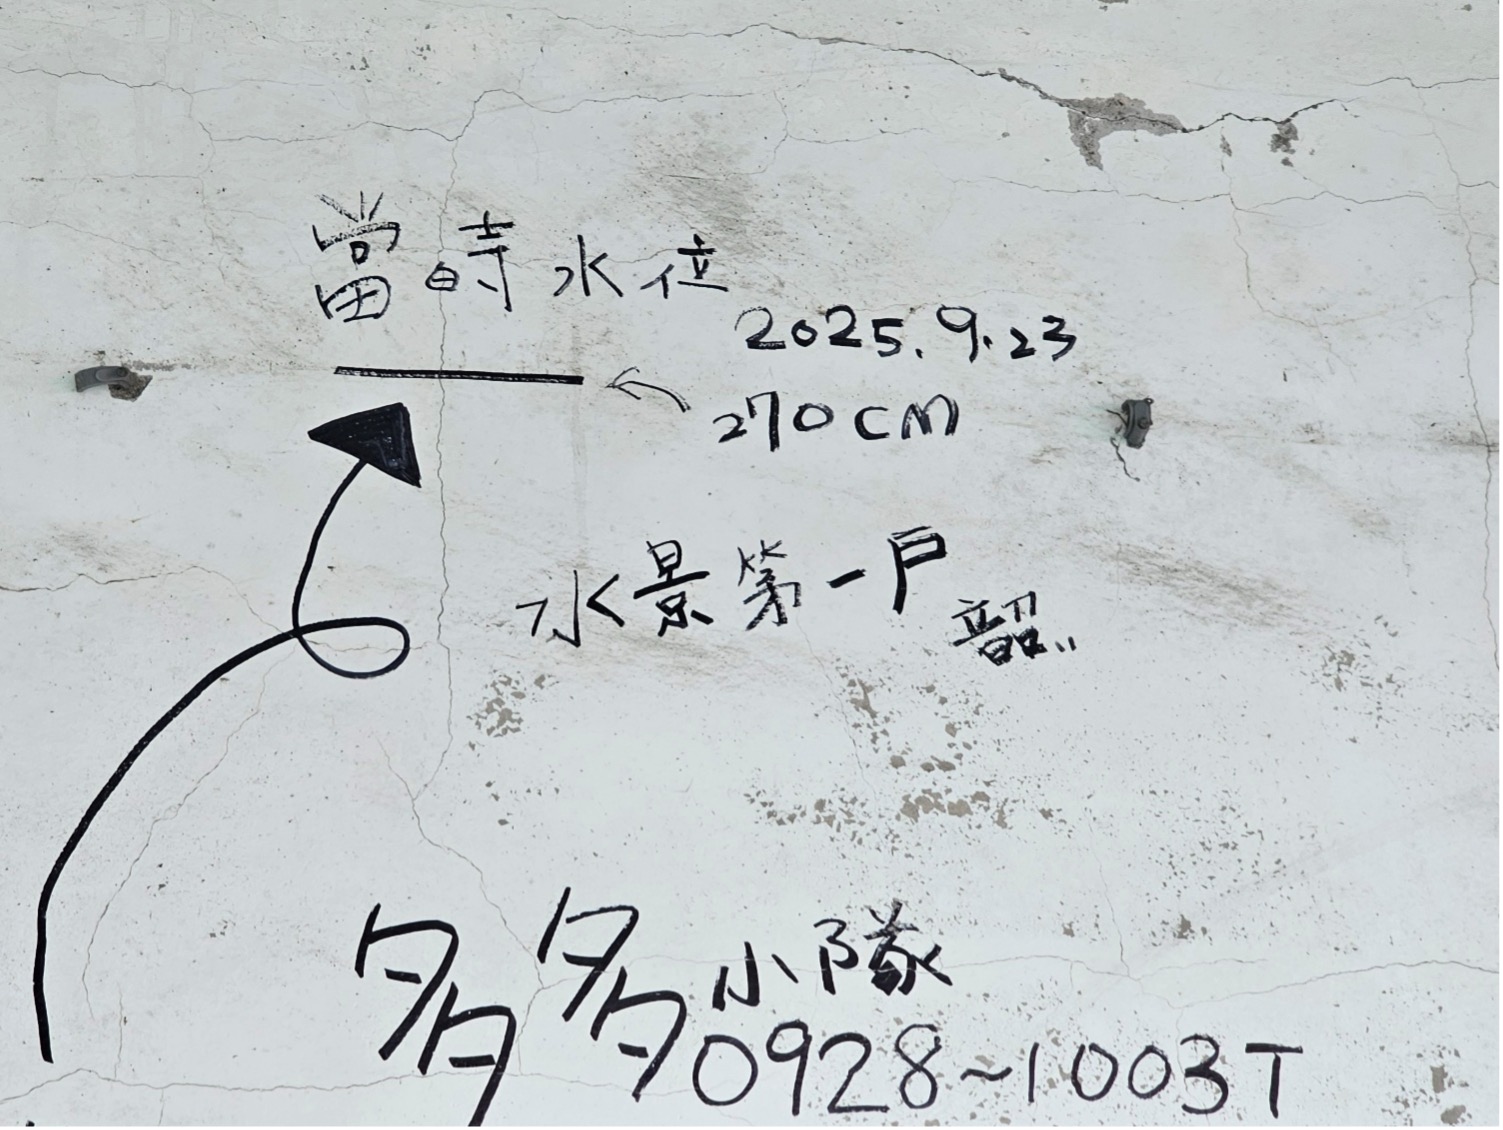 當時水位
2025.9.23
270CM
水景第一戶
韶
多多小隊
0928~1003T